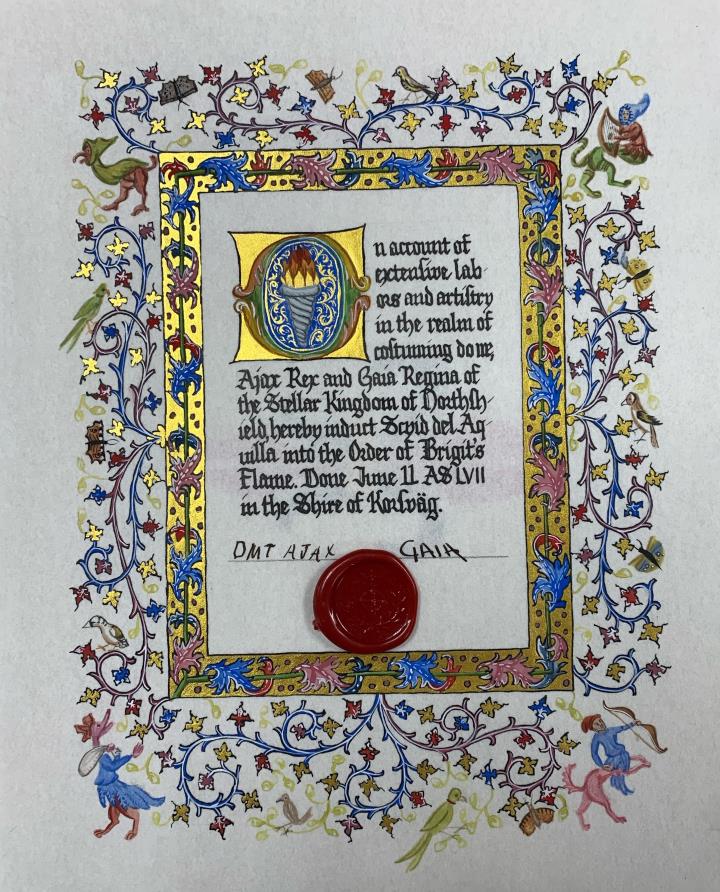 On account of
extensive lab-
ors and artistry
in the realm of
costuming done,
Ajax Rex and Gaia Regina of
the Stellar Kingdom of Northsh-
ield, hereby induct Scvid del Aq
uilla into the Order of Brigit's
Flame. Done June 11 AS LVII
in the Shire of Korsväg.
DMT AJAX GAIA